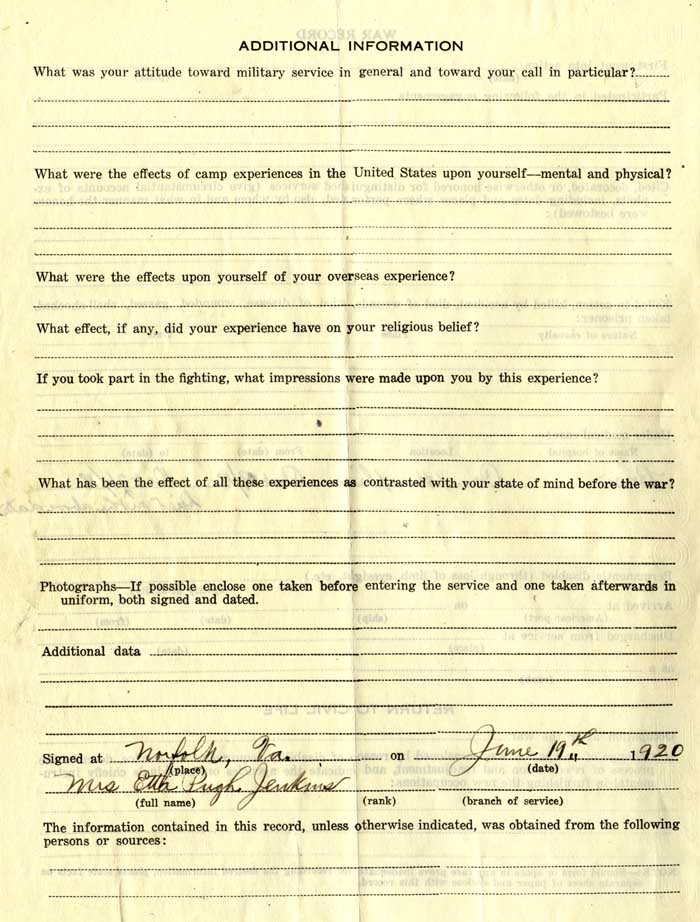 ADDITIONAL INFORMATION
What was your attitude toward military service in general and toward your call in particular?
What were the effects of camp experiences in the United States upon yourself—mental and physical?
What were the effects upon yourself of your overseas experience?
What effect, if any, did your experience have on your religious belief?
If you took part in the fighting, what impressions were made upon you by this experience?
What has been the effect of all these experiences as contrasted with your state of mind before the war?
Photographs—If possible enclose one taken before entering the service and one taken afterwards in
uniform, both signed and dated.
Additional data
Signed at Norfolk, Va. on June 19th 1920
(place) (date)
Mrs Etta Pugh Jenkins
(full name) (rank) (branch of service)
The information contained in this record, unless otherwise indicated, was obtained from the following
persons or sources: